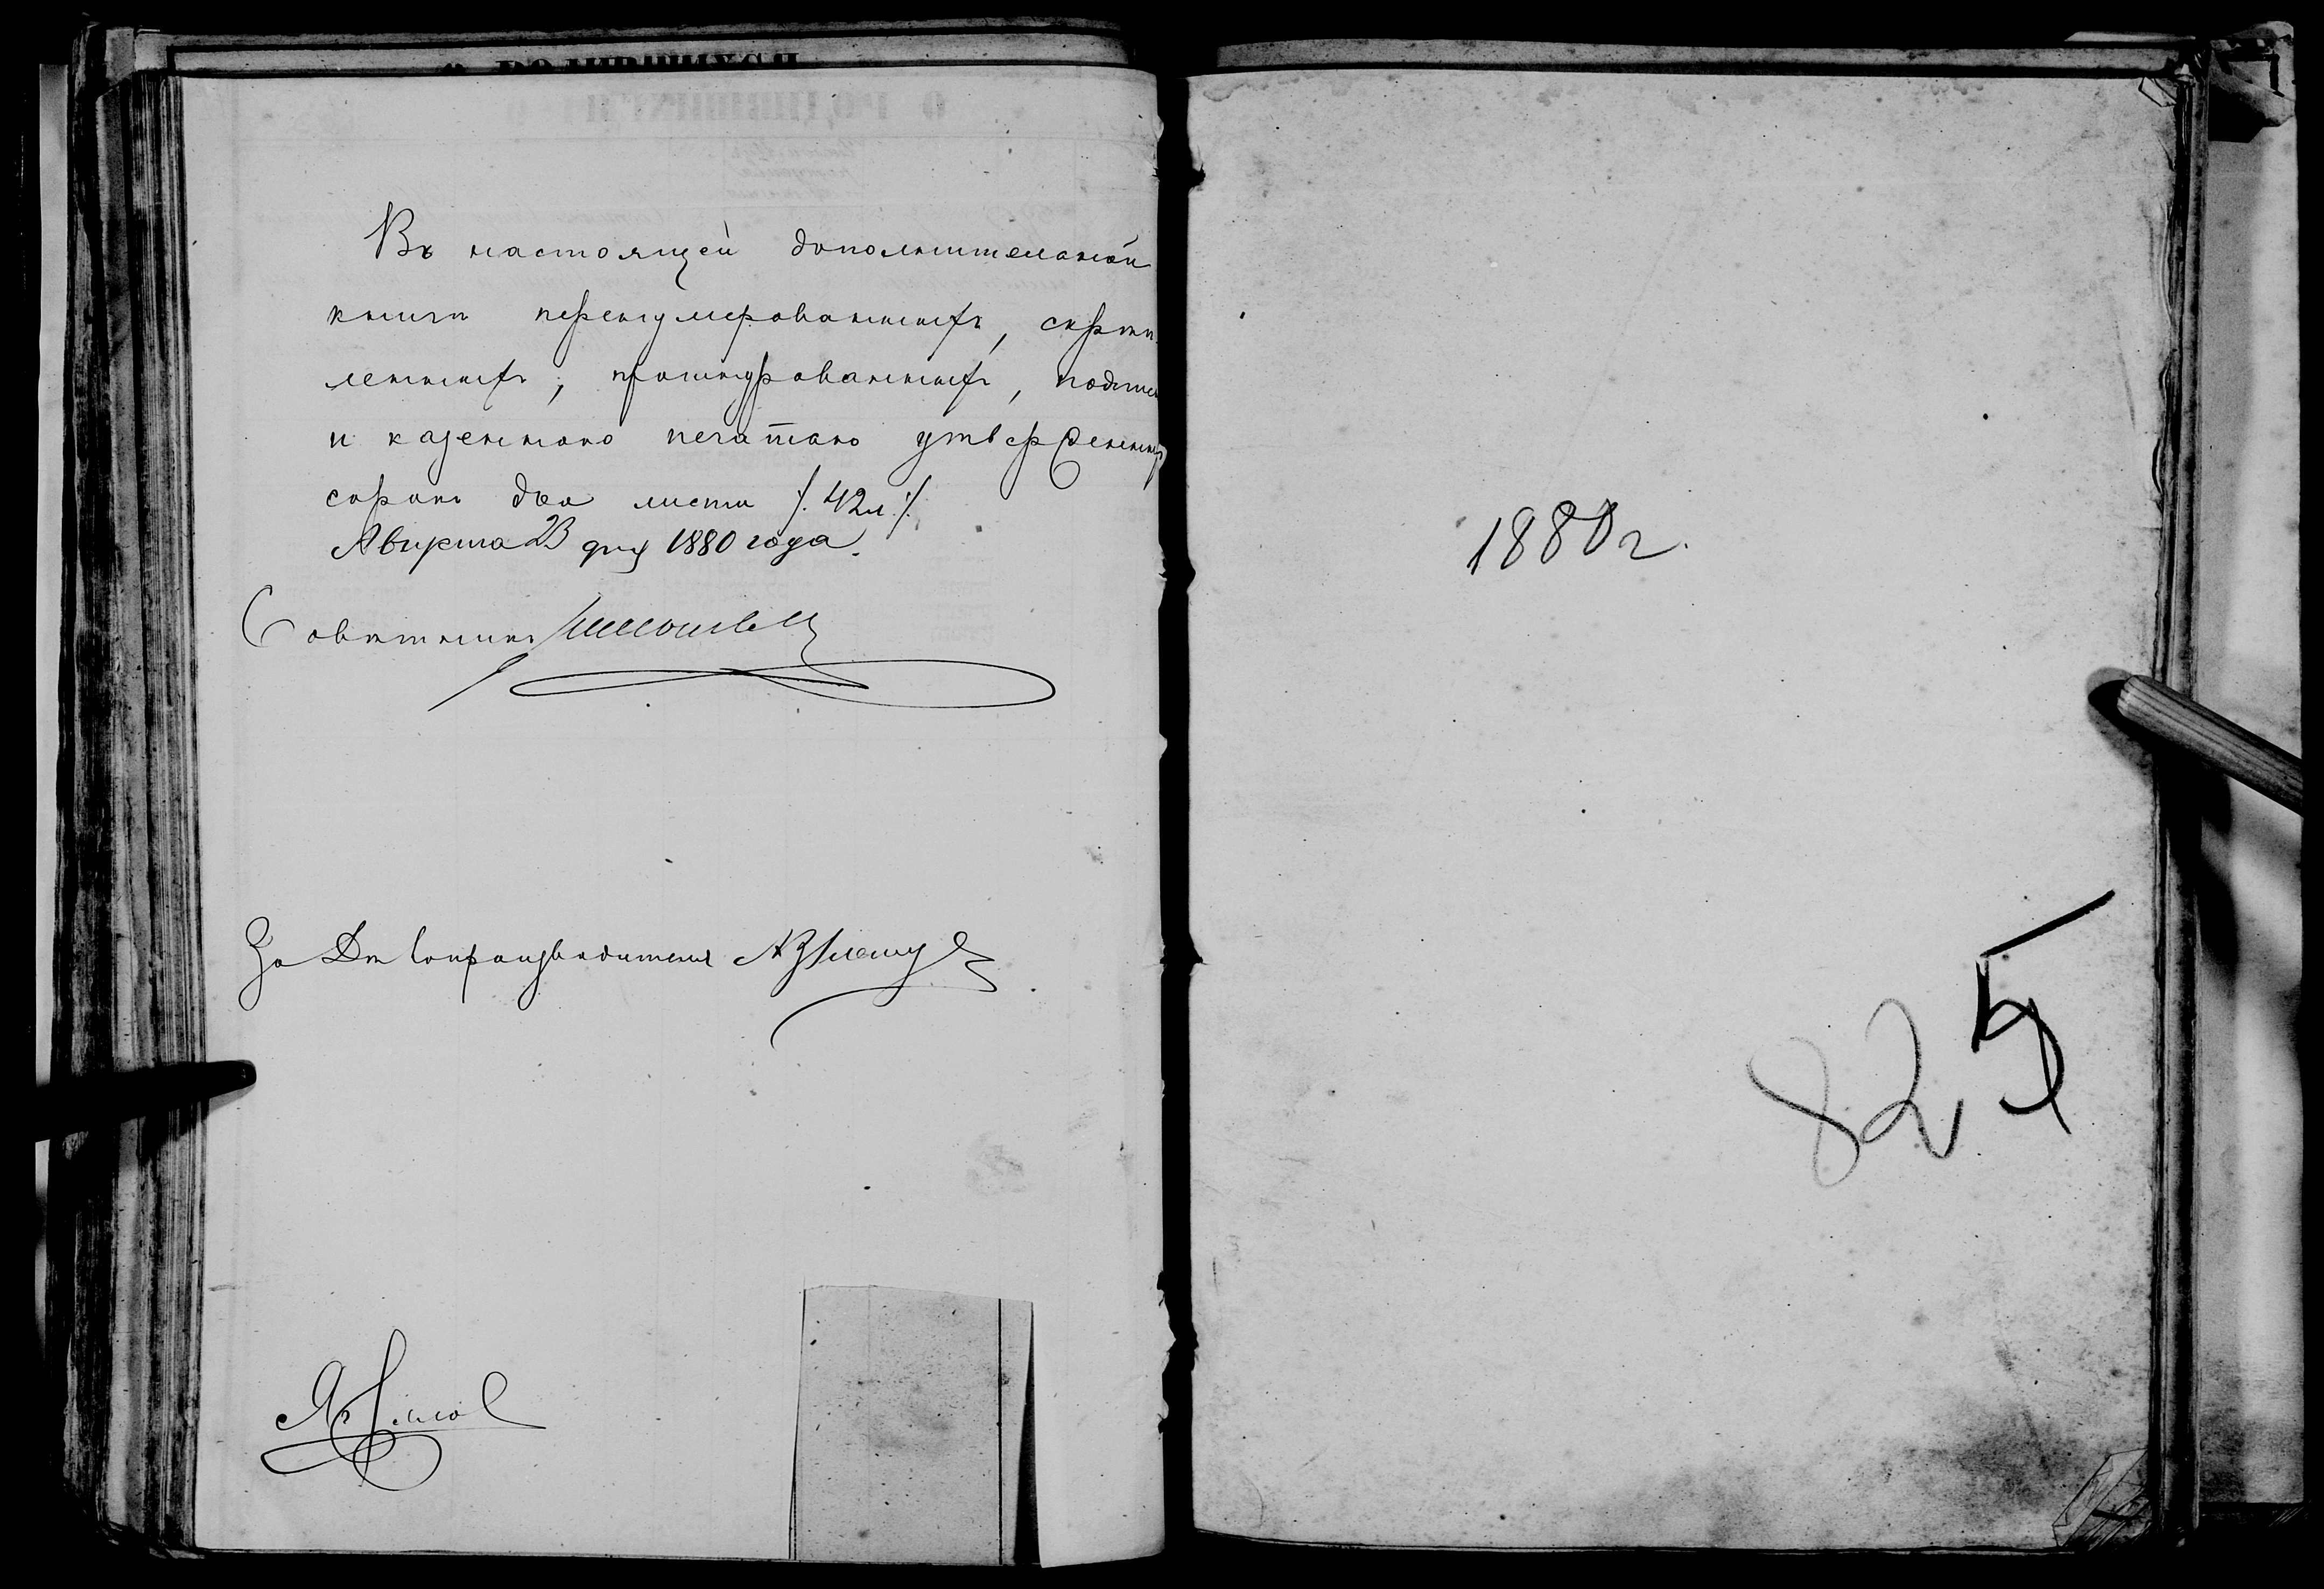 О РОДИВШИХСЯ
Въ настоящей дополнительной
книги перенумерованныхъ, скрѣп
ленныхъ, прошнурованныхъ,
и казенною печатью утвержденныхъ
сорокъ два листа /. 42 л ./.
Августа 23 дня 1880 года.
Совѣтникъ
За Дѣлопроизводителя
1880 г.
825